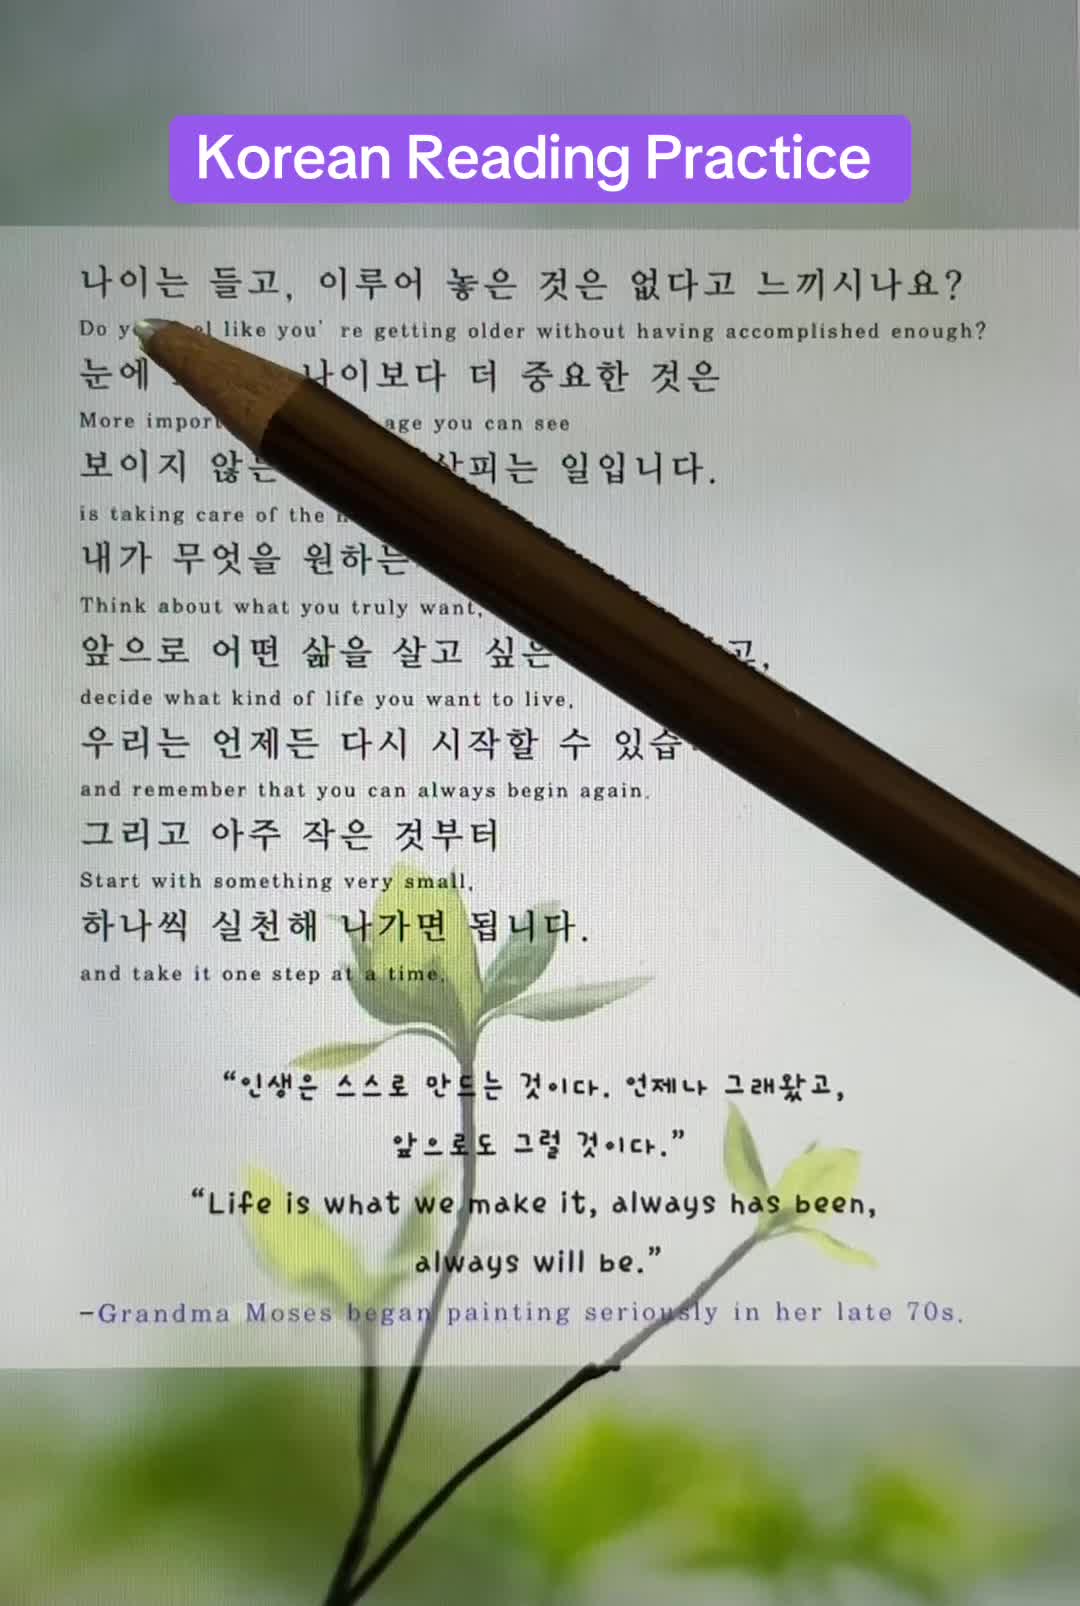 Korean Reading Practice
나이는 들고, 이루어 놓은 것은 없다고 느끼시나요?
Do like you're getting older without having accomplished enough?
눈에 나이보다 더 중요한 것은
More age you can see
보이지 않는 일입니다.
is taking care of the
내가 무엇을 원하는
Think about what you truly want,
앞으로 어떤 삶을 살고 싶은
decide what kind of life you want to live,
우리는 언제든 다시 시작할 수
and remember that you can always begin again.
그리고 아주 작은 것부터
Start with something very small,
하나씩 실천해 나가면 됩니다.
and take it one step at a time.
“인생은 스스로 만드는 것이다. 언제나 그래왔고,
앞으로도 그럴 것이다.”
“Life is what we make it, always has been,
always will be.”
-Grandma Moses began painting seriously in her late 70s.